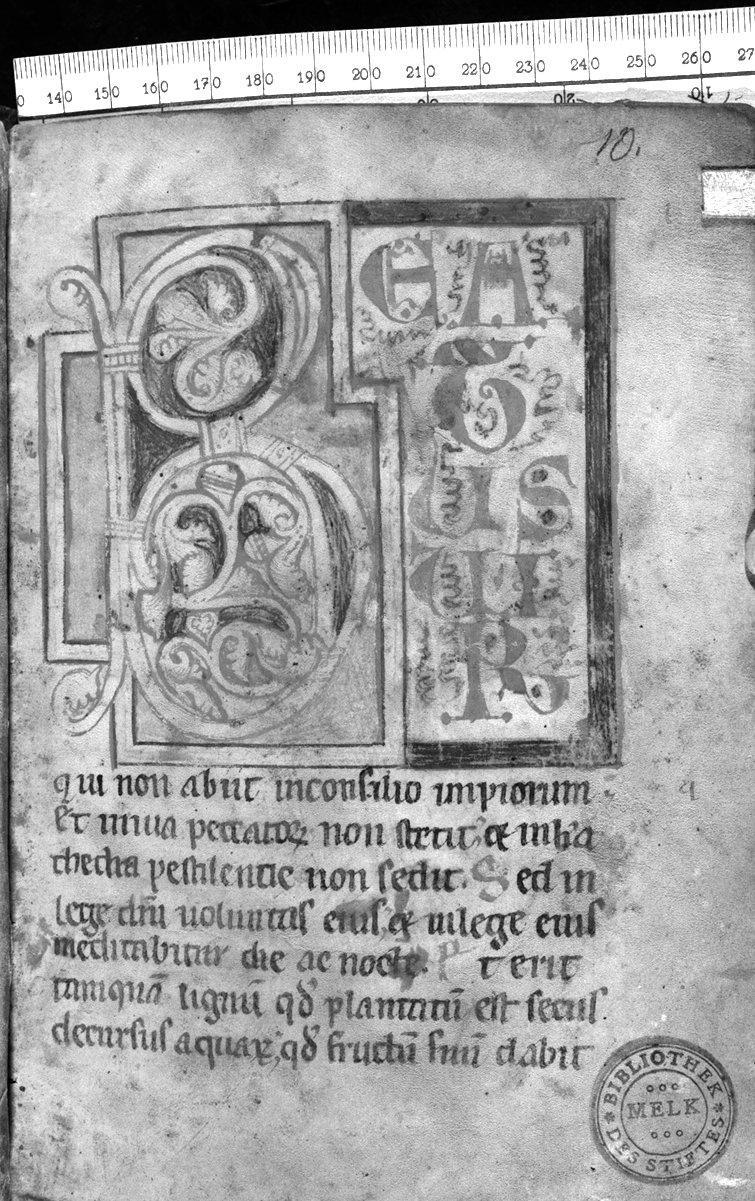 140 150 160 170 180 190 200 210 220 230 240 250 260 27
10.
B EA
T
VIS
VI
R
qui non abiit inconsilio impiorum
et inuia peccatoꝝ non stetit, & inka
thedra pestilentie non sedit. Sed in
lege dn̄i uoluntas eius, & inlege eius
meditabitur die ac nocte. Et erit
tamquā lignū qd̓ plantatū est secus
decursus aquaꝝ, qd̓ fructū suū dabit
BIBLIOTHEK
MELK
DES STIFTES